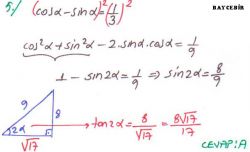 BAYCEBİR
5./ (cosα - sinα)² = (1/3)²
cos²α + sin²α - 2.sinα.cosα = 1/9
1 - sin2α = 1/9 ⇒ sin2α = 8/9
9
8
2α
√17
tan2α = 8/√17 = 8√17/17
CEVAP: A